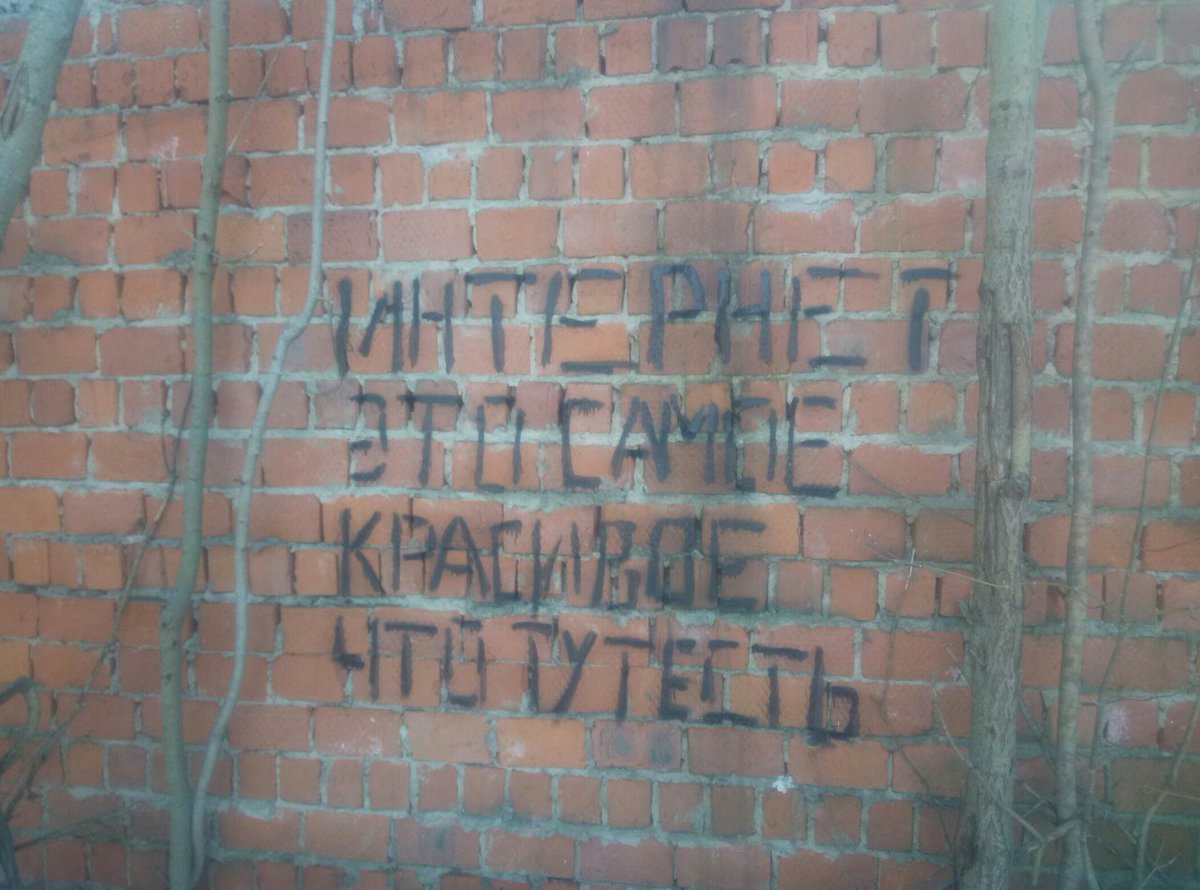 ИНТЕРНЕТ
ЭТО САМОЕ
КРАСИВОЕ
ЧТО ТУТ ЕСТЬ